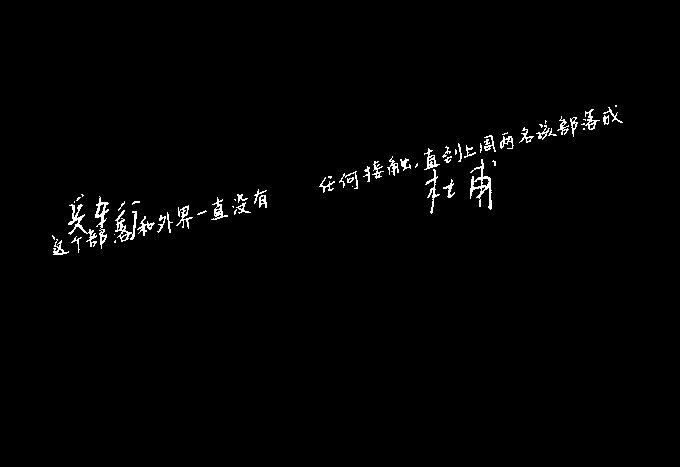 兵车行
这个部落和外界一直没有 任何接触，直到上周两名该部落成
杜甫